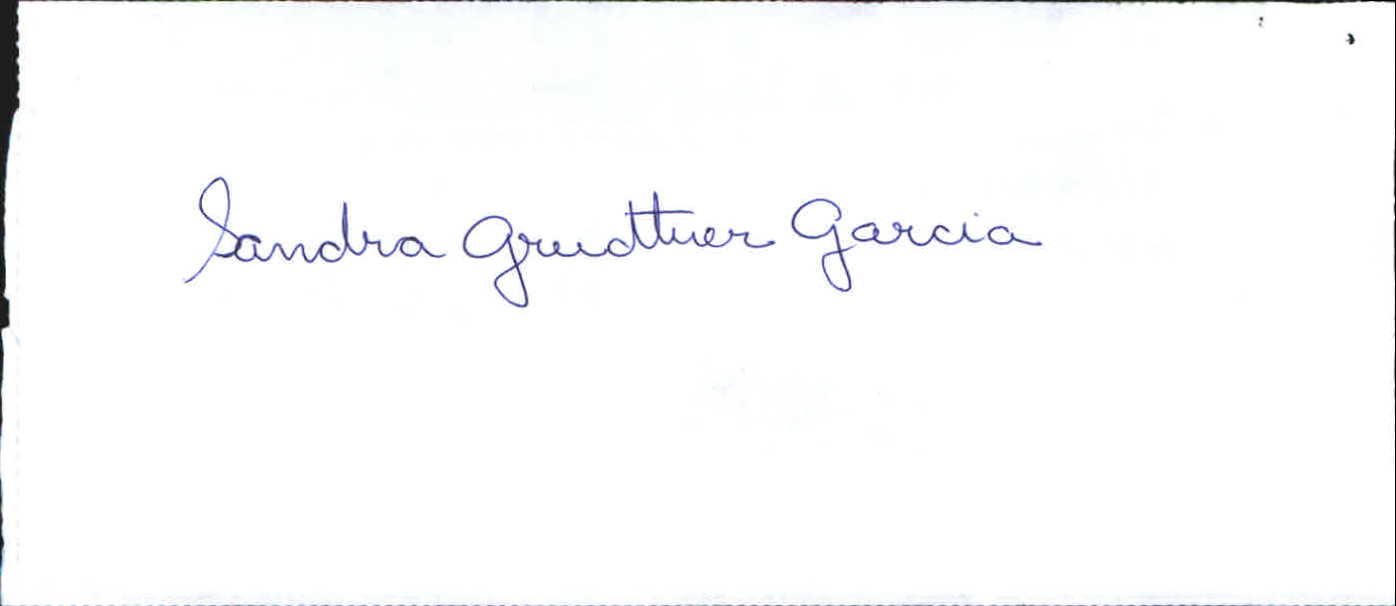 Sandra Grudtner Garcia